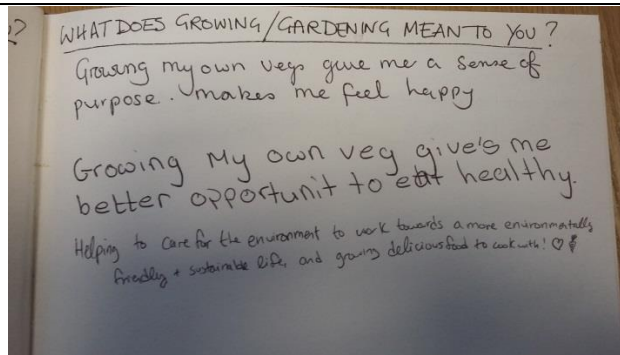 ?
WHAT DOES GROWING/GARDENING MEAN TO YOU?
Growing my own vegs give me a sense of
purpose. makes me feel happy
Growing My own veg give's me
better opportunit to eat healthy.
Helping to care for the environment to work towards a more environmentally
friendly + sustainable life, and growing delicious food to cook with! ♡